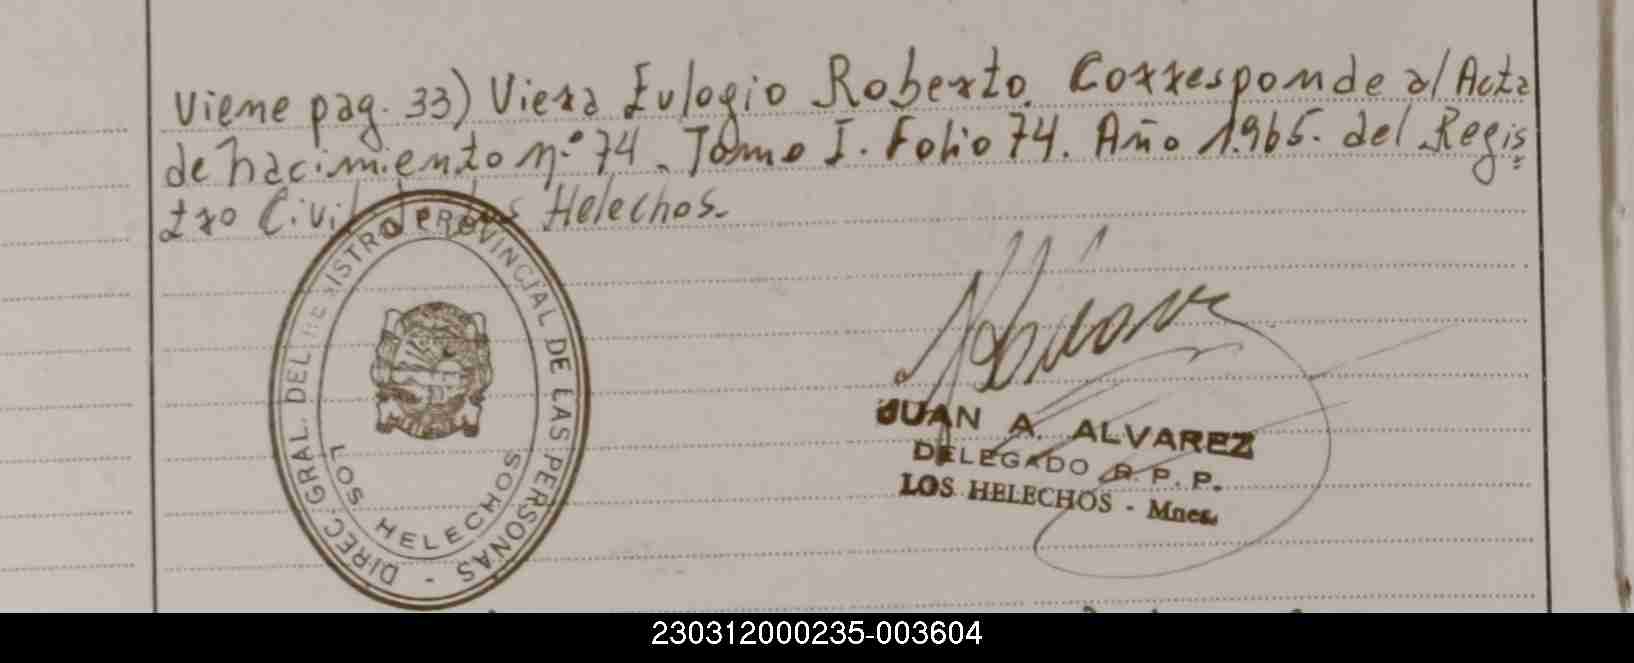 Viene pag. 33) Viera Eulogio Roberto. Corresponde al Acta
de nacimiento n.º 74. Tomo I. Folio 74. Año 1.965. del Regis
tro Civil de Los Helechos.-
DIREC. GRAL. DEL REGISTRO PROVINCIAL DE LAS PERSONAS -
LOS HELECHOS
JUAN A. ALVAREZ
DELEGADO R. P. P.
LOS HELECHOS - Mnes.
230312000235-003604